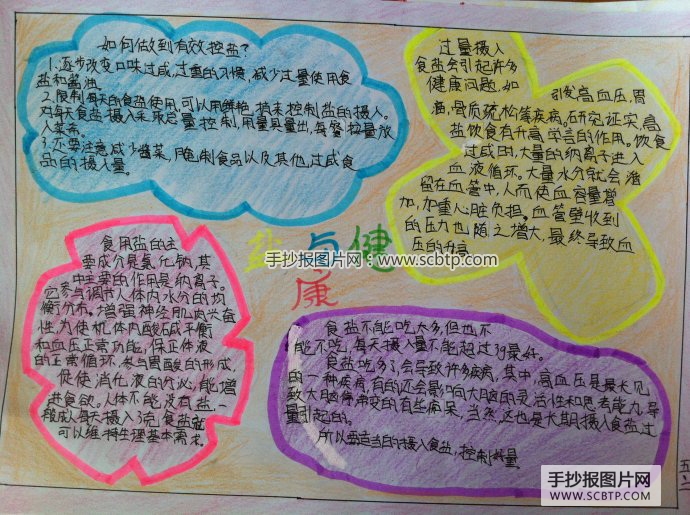 如何做到有效控盐?
1.逐步改变口味过咸,过重的习惯,减少过量使用食
盐和酱油。
2.限制每天的食盐使用,可以用鲜艳、 来控制盐的摄入。
对每天食盐摄入采取总量控制,用量具量出,每餐按量放
入菜肴。
3.还要注意减少酱菜,腌制食品以及其他,过咸食
品的摄入量。
过量摄入
食盐会引起许多
健康问题,如
引发高血压,胃
癌,骨质疏松等疾病,研究证实,高
盐饮食有升高 的作用。饮食
过咸时,大量的钠离子进入
血液循环。大量水分就会潴
留在血管中,从而使血容量增
加,加重心脏负担。血管壁收到
的压力也随之增大,最终导致血
压的升高
盐与健
康
手抄报图片网:www.scbtp.com
食用盐的主
要成分是氯化钠,其
中主要的作用是钠离子。
它参与调节人体内水分的均
衡分布。增强神经肌肉兴奋
性,为使机体内酸碱平衡
和血压正常功能,保正体液
的正常循环,参与胃酸的形成,
促使消化液的分泌,能增
进食欲。人体不能没有盐,一
般成人每天摄入3克食盐就
可以维持生理基本需求。
食盐不能吃太多但也不
能不吃,每天摄入量不能超过 最好。
食盐吃多了会导致许多疾病,其中,高血压是最长见
的一种疾病,有的还会影响大脑的灵活性和思考能力,导
致大脑停滞变的有些痴呆,当然,这也是长期摄入食盐过
量引起的。
所以要适当的摄入食盐,控制好量
五
手抄报图片网
WWW.SCBTP.COM